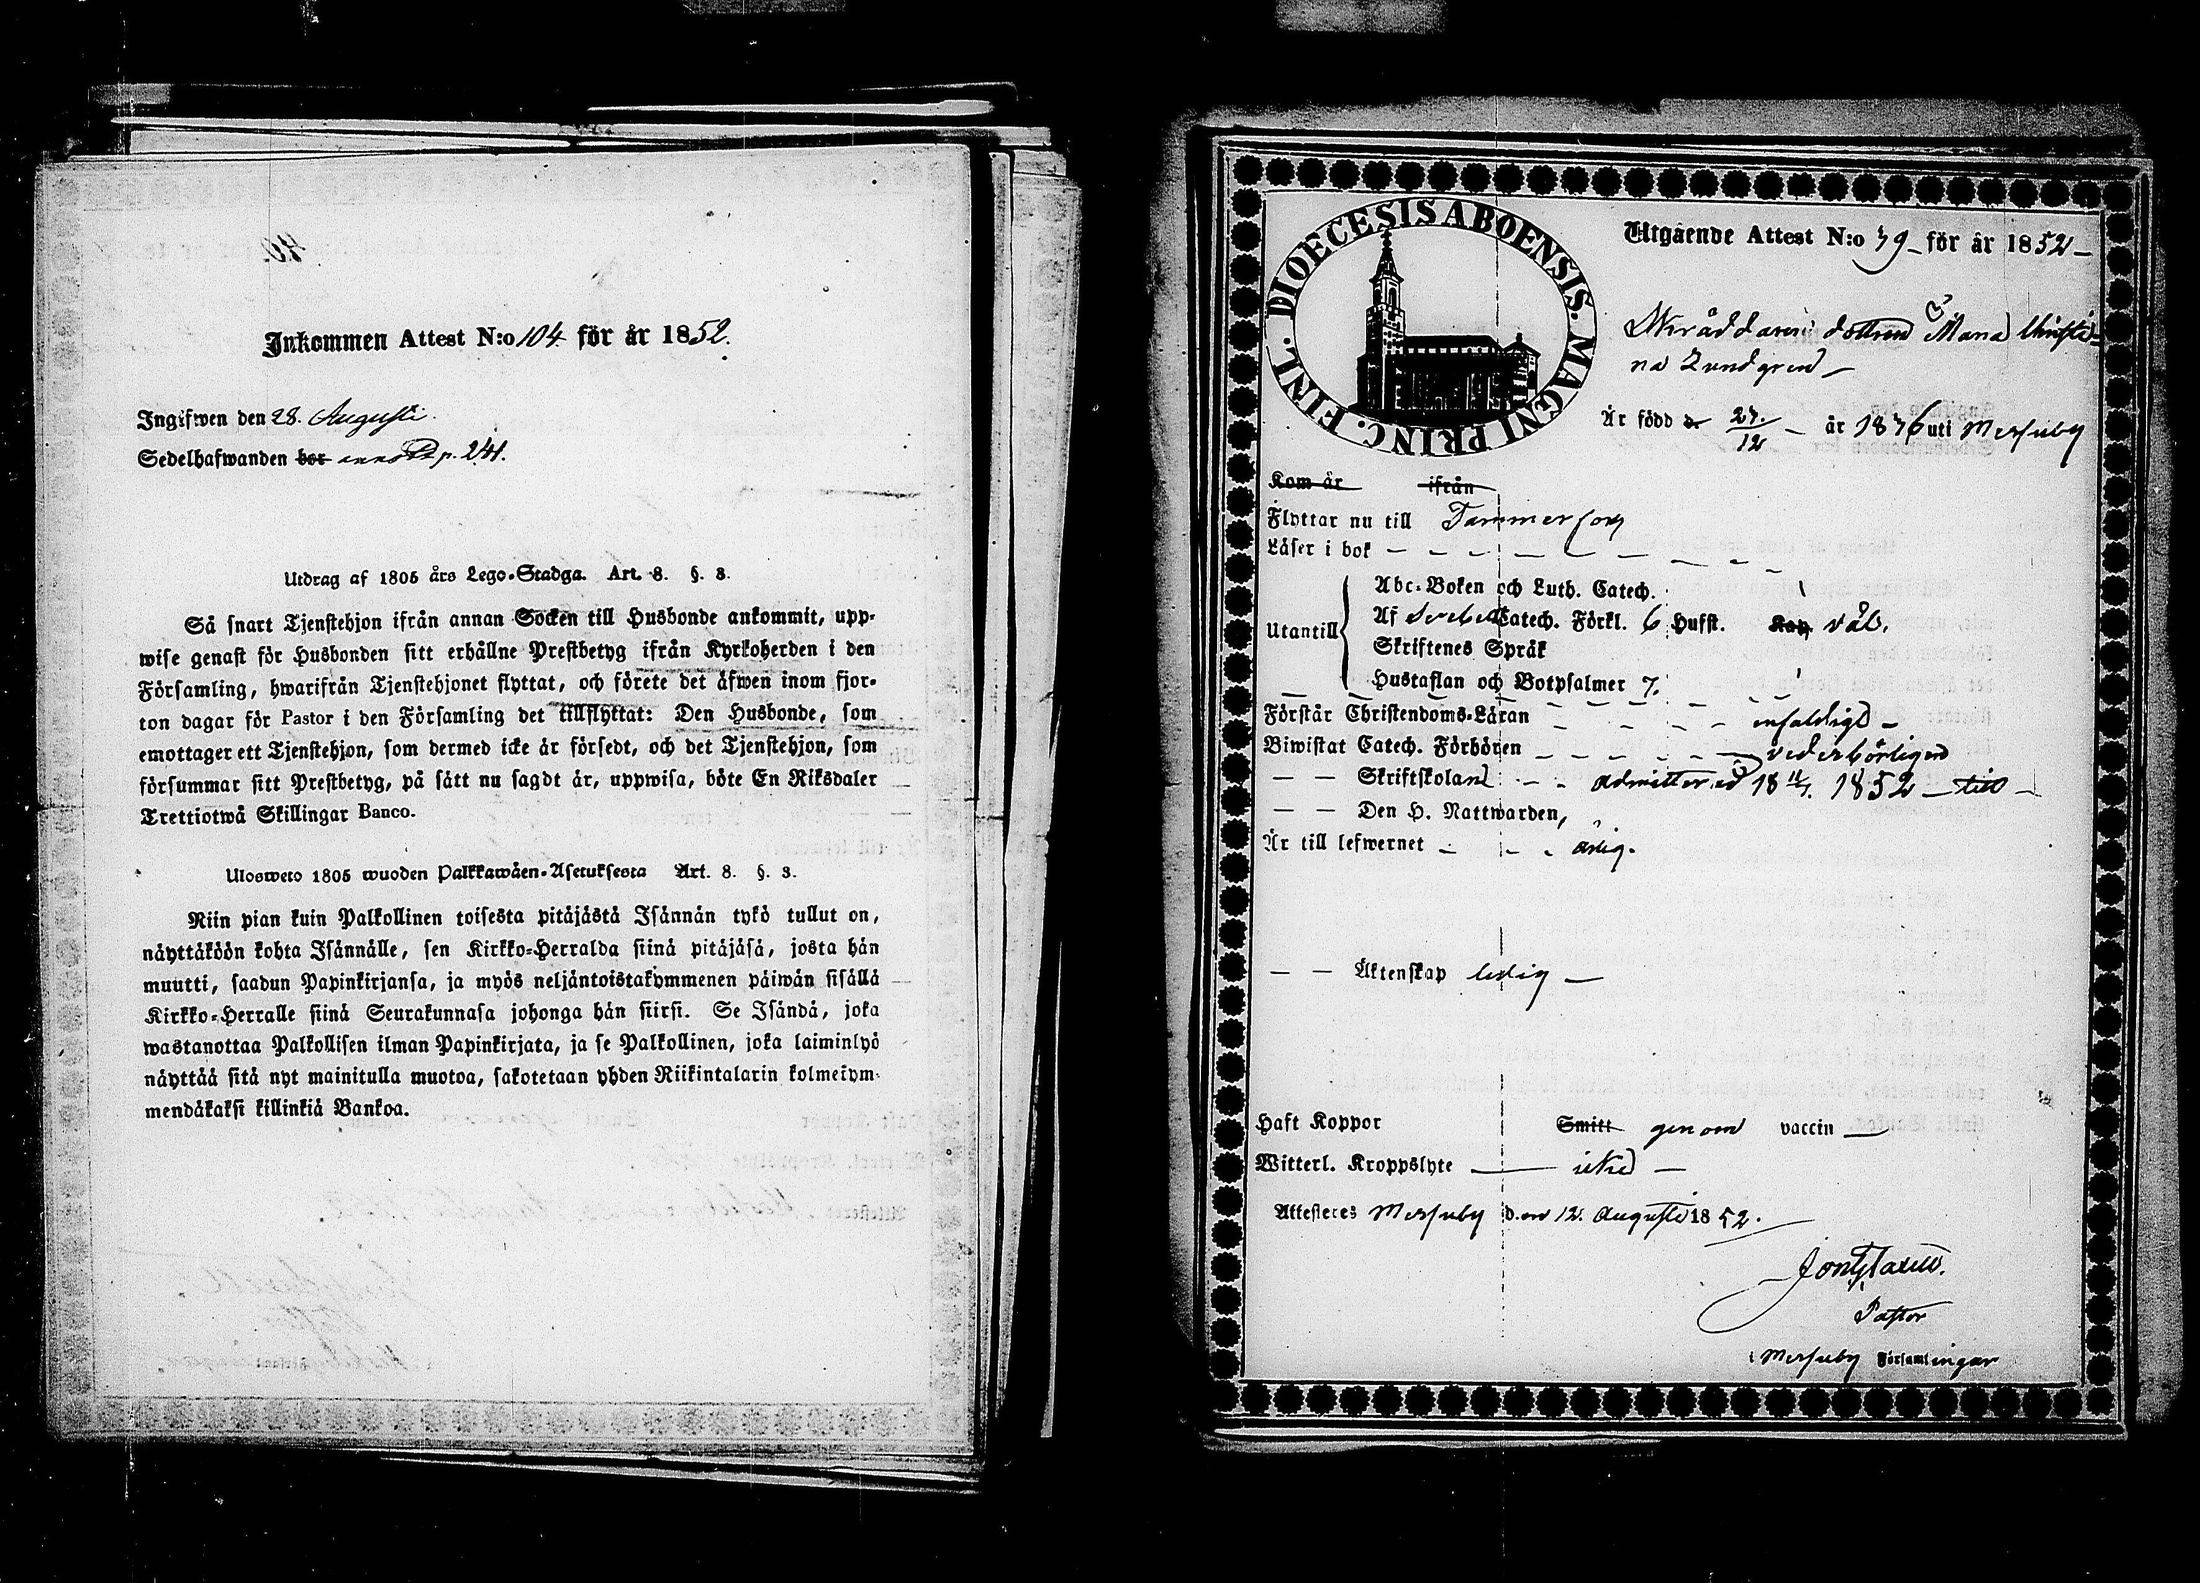 Inkommen Attest N:o 104 för år 1852.
Ingifwen den 28. Augusti
Sedelhafwanden bor p. 241.
Utdrag af 1805 års Lego-Stadga. Art. 8. §. 3.
Så snart Tjenstehjon ifrån annan Socken till Husbonde ankommit, upp-
wise genast för Husbonden sitt erhållne Prestbetyg ifrån Kyrkoherden i den
Församling, hwarifrån Tjenstehjonet flyttat, och förete det äfwen inom fjor-
ton dagar för Pastor i den Församling det tillflyttat: Den Husbonde, som
emottager ett Tjenstehjon, som dermed icke är försedt, och det Tjenstehjon, som
försummar sitt Prestbetyg, på sätt nu sagdt är, uppwisa, böte En Riksdaler
Trettiotwå Skillingar Banco.
Ulosweto 1805 wuoden Palkkawäen-Asetuksesta Art. 8. §. 3.
Niin pian kuin Palkollinen toisesta pitäjästä Isännän tykö tullut on,
näyttäköön kohta Isännälle, sen Kirkko-Herralda siinä pitäjäsä, josta hän
muutti, saadun Papinkirjansa, ja myös neljäntoistakymmenen päiwän sisällä
Kirkko-Herralle siinä Seurakunnasa johonga hän siirsi. Se Isändä, joka
wastanottaa Palkollisen ilman Papinkirjata, ja se Palkollinen, joka laiminlyö
näyttää sitä nyt mainitulla muotoa, sakotetaan yhden Riikintalarin kolmekym-
mendäkaksi killinkiä Bankoa.
DIOECESIS ABOENSIS. MAGNI PRINC. FINL.
Utgående Attest N:o 79 för år 1852
Skräddare dottren Maria Christi-
na Lundgren
Är född d. 27./12 år 1836 uti Messuby
Kom år ifrån
Flyttar nu till Tammerfors
Läser i bok
Utantill
Abc-Boken och Luth. Catech.
Af Svebelii Catech. Förkl. 6 Hufst. Kap. väl.
Skriftenes Språk
Hustaflan och Botpsalmer 7.
Förstår Christendoms-Läran enfaldigt
Biwistat Catech. Förhören vederbörligen
Skriftskolan admitterad 18 11/7. 1852 till
Den H. Nattwarden,
Är till lefwernet ärlig.
Äktenskap ledig
Haft Koppor Smitt genom vaccin
Witterl. Kroppslyte icke
Attesteres Messuby den 12. Augusti 1852.
Pastor
i Messuby Församlingar